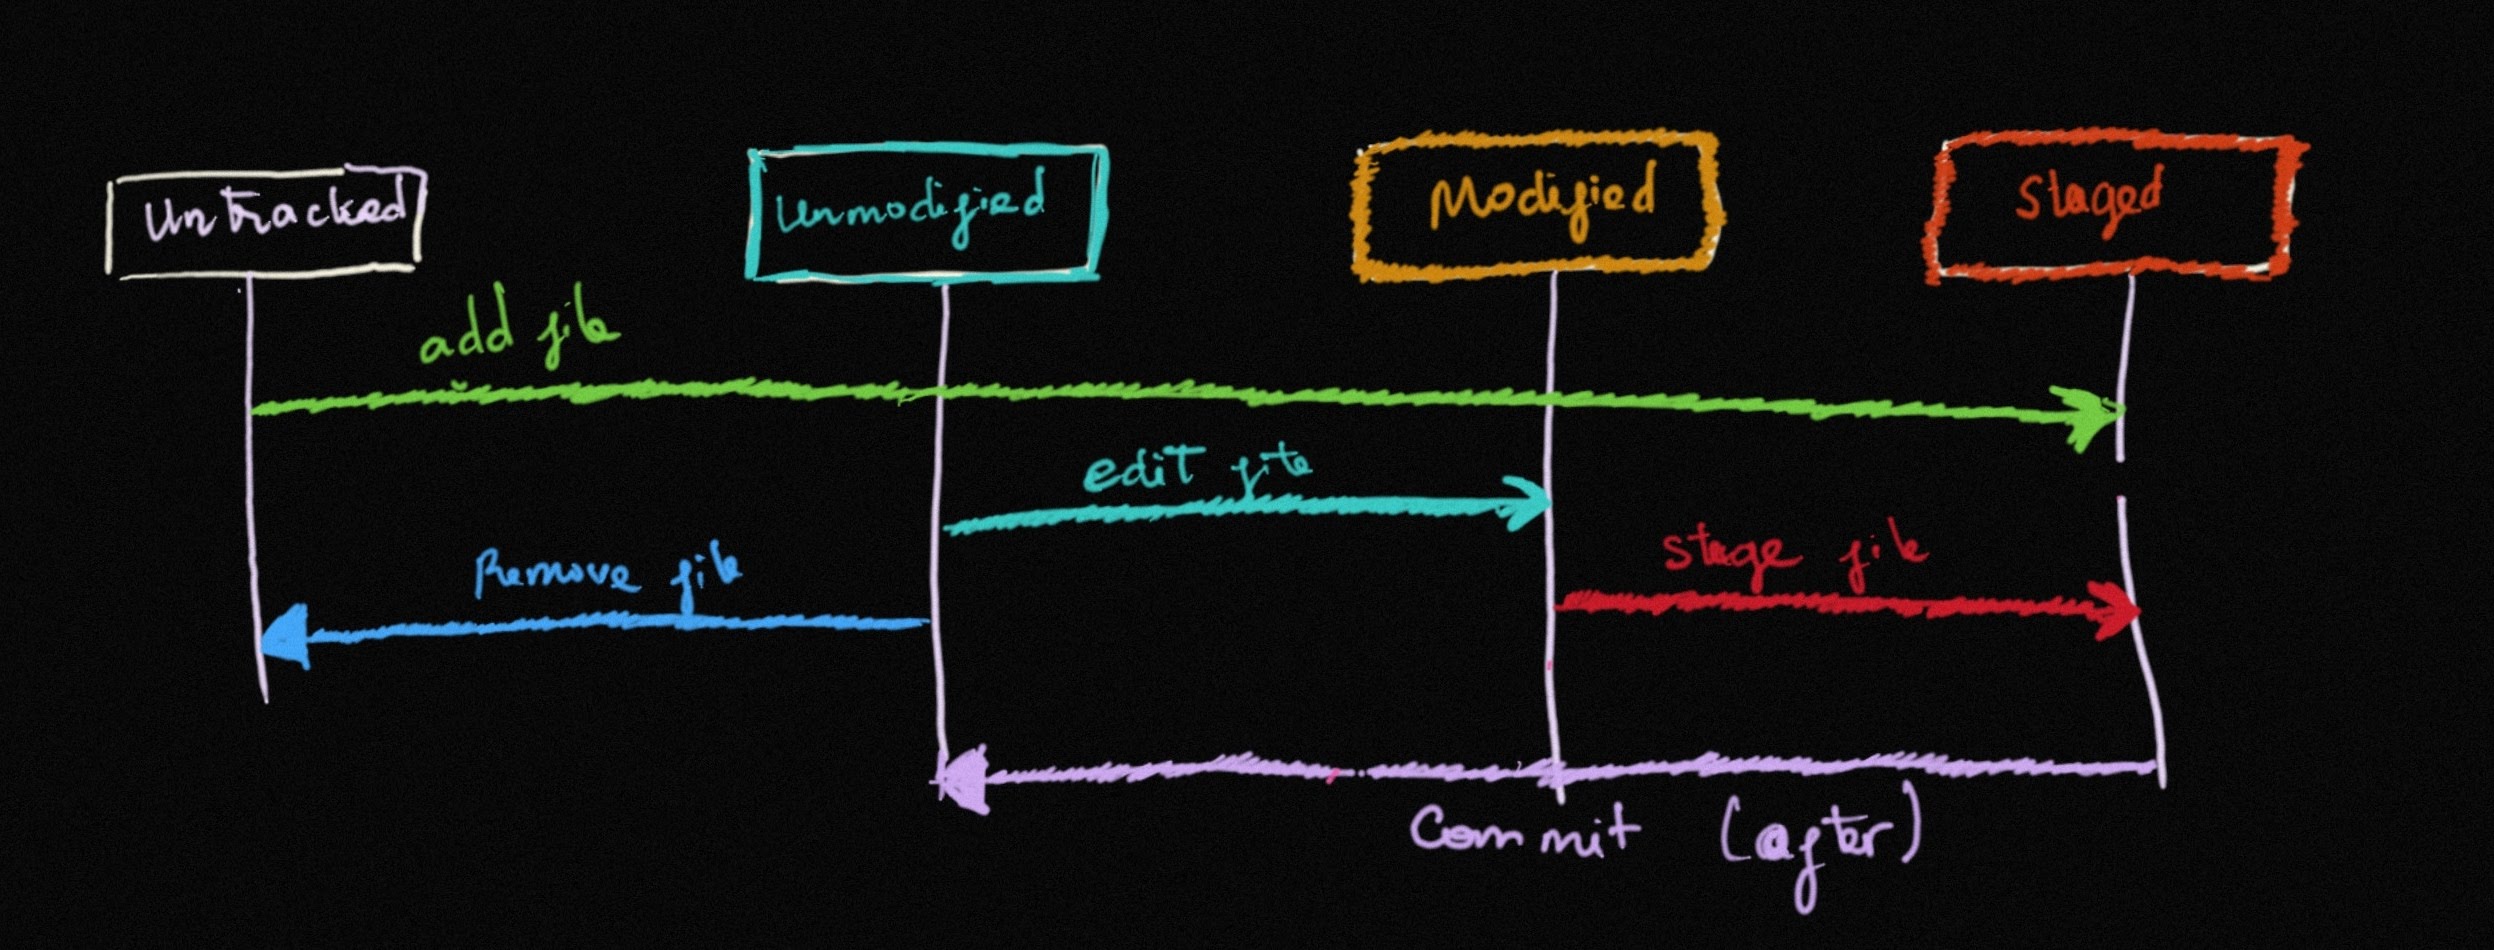 Untracked
Unmodified
Modified
Staged
add file
edit file
Stage file
Remove file
Commit (after)